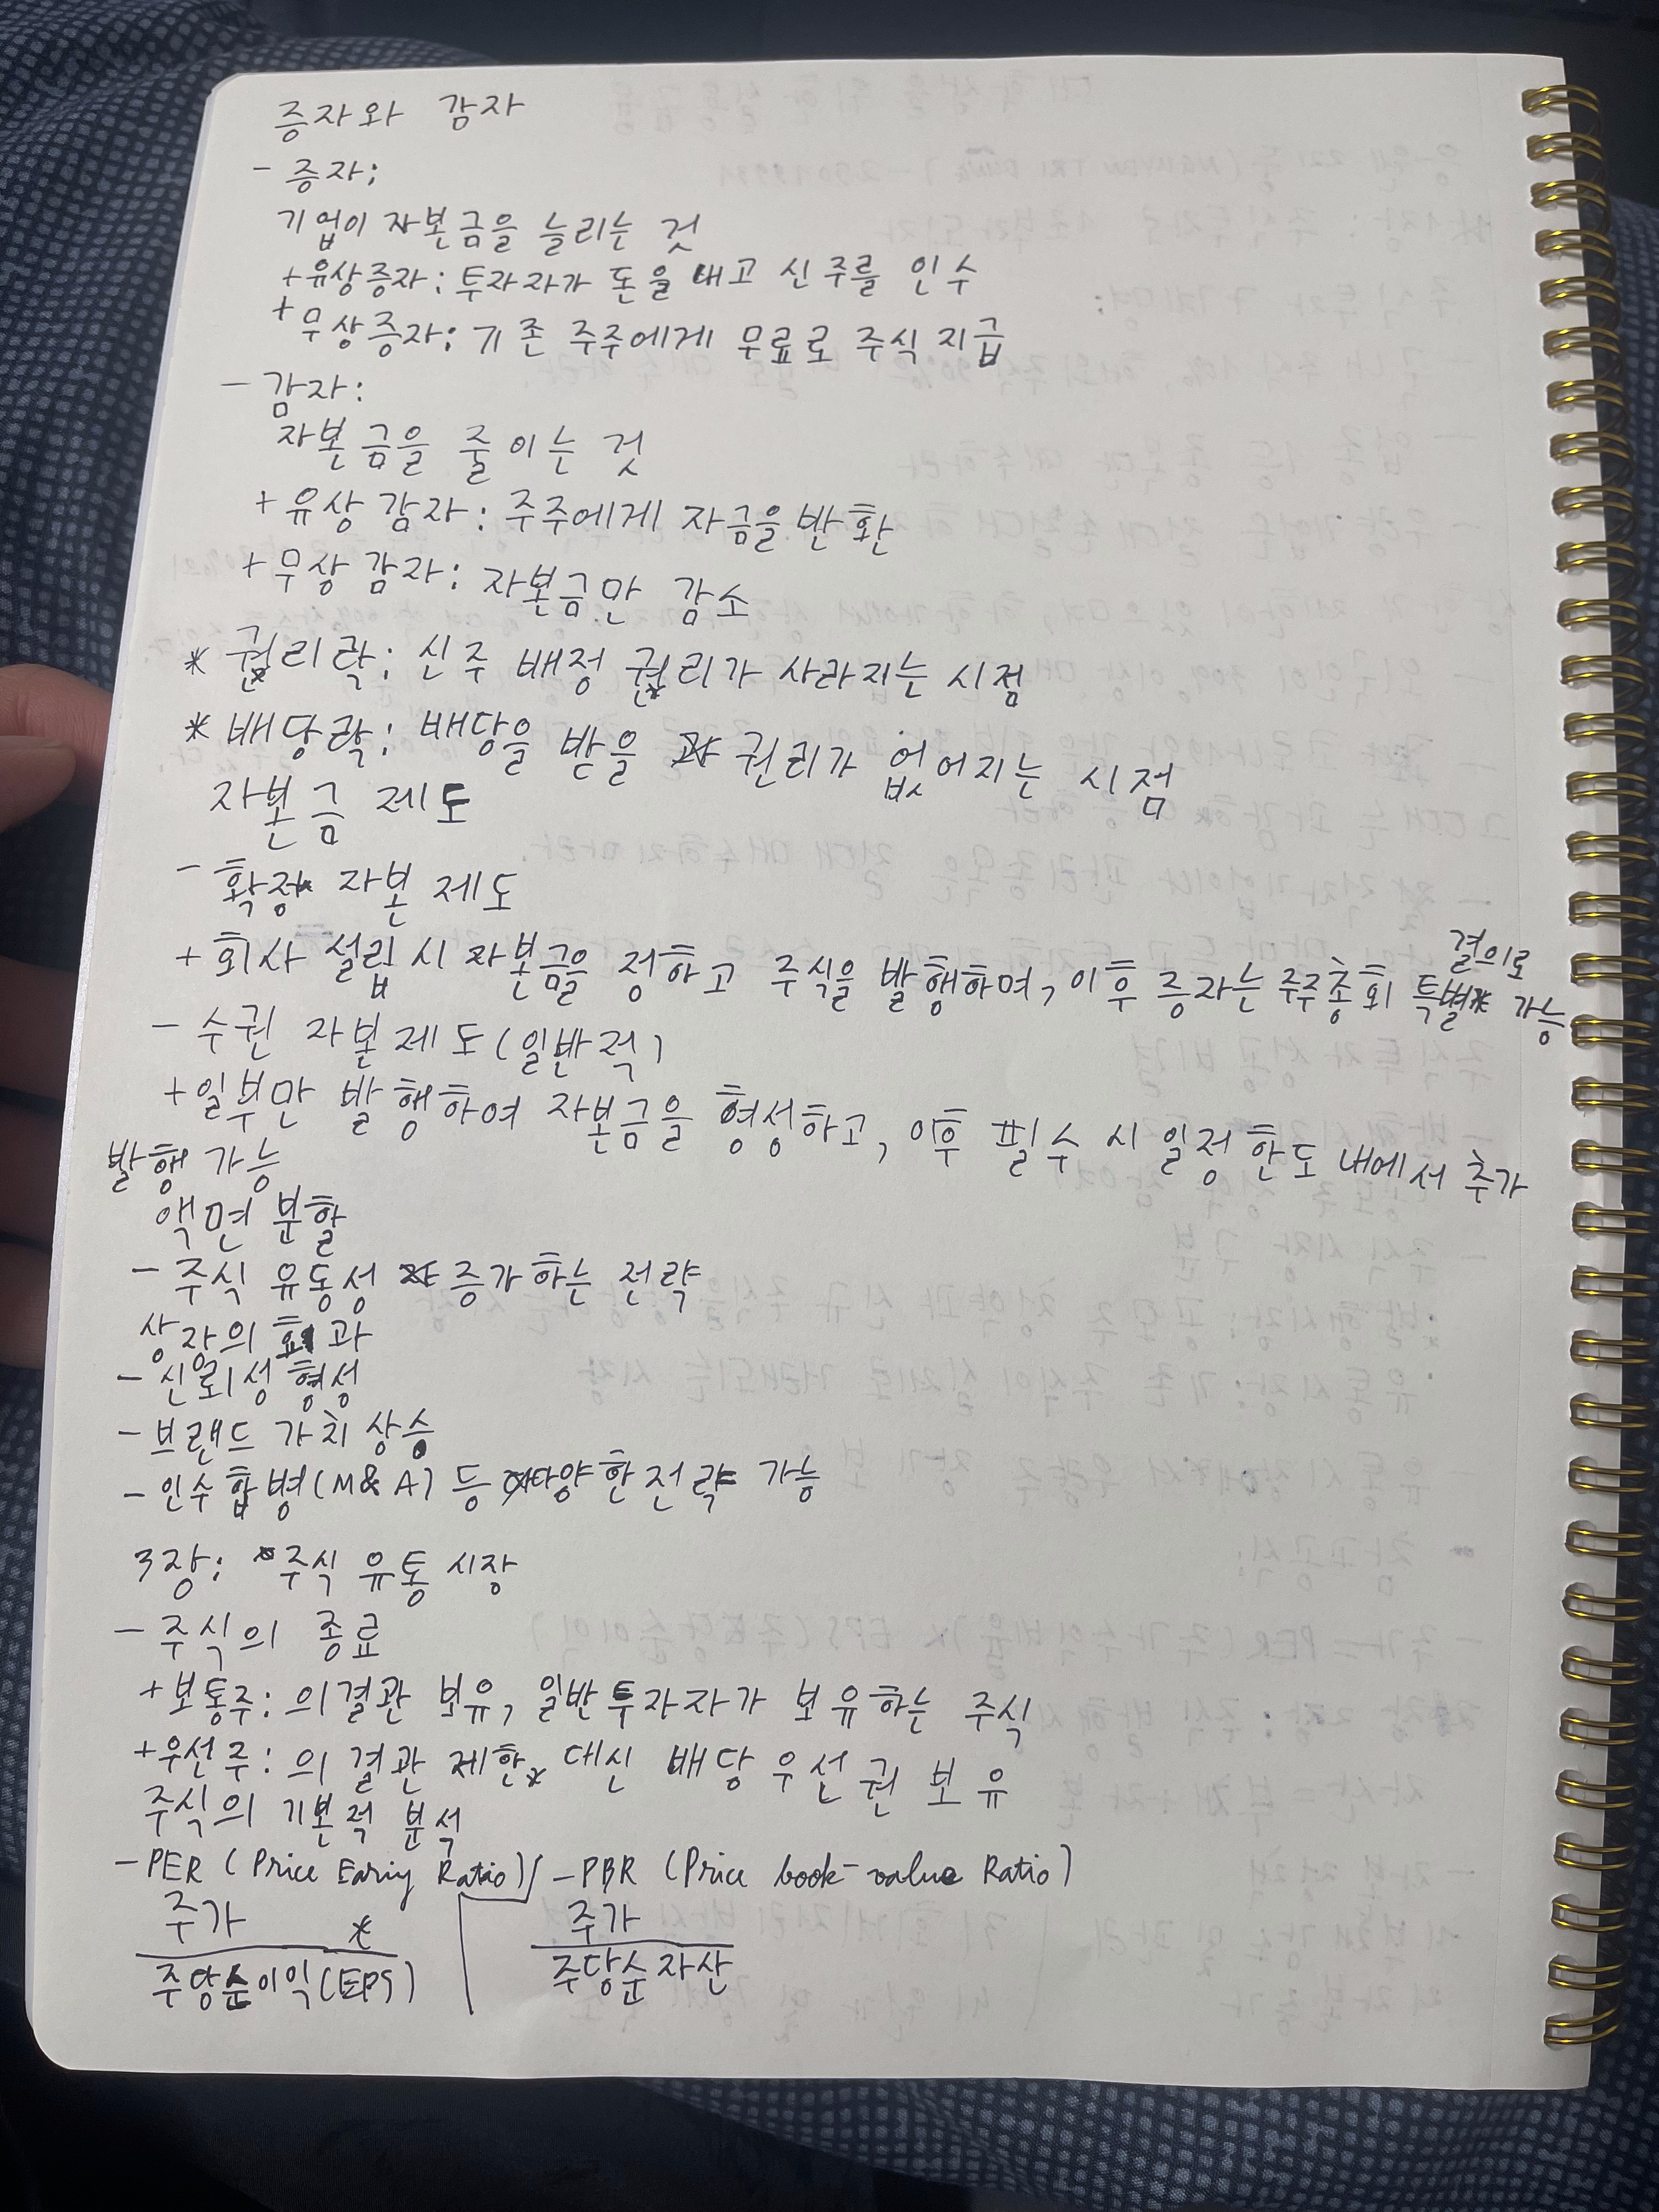 증자와 감자
- 증자:
기업이 자본금을 늘리는 것
+ 유상증자: 투자자가 돈을 내고 신주를 인수
+ 무상증자: 기존 주주에게 무료로 주식 지급
- 감자:
자본금을 줄이는 것
+ 유상 감자: 주주에게 자금을 반환
+ 무상 감자: 자본금만 감소
* 권리락: 신주 배정 권리가 사라지는 시점
* 배당락: 배당을 받을 권리가 없어지는 시점
자본금 제도
- 확정 자본 제도
+ 회사 설립 시 자본금을 정하고 주식을 발행하며, 이후 증자는 주주총회 특별 결의로 가능
- 수권 자본제도 (일반적)
+ 일부만 발행하여 자본금을 형성하고, 이후 필수 시 일정 한도 내에서 추가
발행 가능
액면 분할
- 주식 유동성 증가하는 전략
상장의 효과
- 신뢰성 형성
- 브랜드 가치 상승
- 인수합병(M&A) 등 다양한 전략 가능
3장: 주식 유통 시장
- 주식의 종료
+ 보통주: 의결관 보유, 일반 투자자가 보유하는 주식
+ 우선주: 의결관 제한, 대신 배당 우선권 보유
주식의 기본적 분석
- PER (Price Ratio) - PBR (Price book-value Ratio)
주가 주가
주당순이익(EPS) 주당순자산